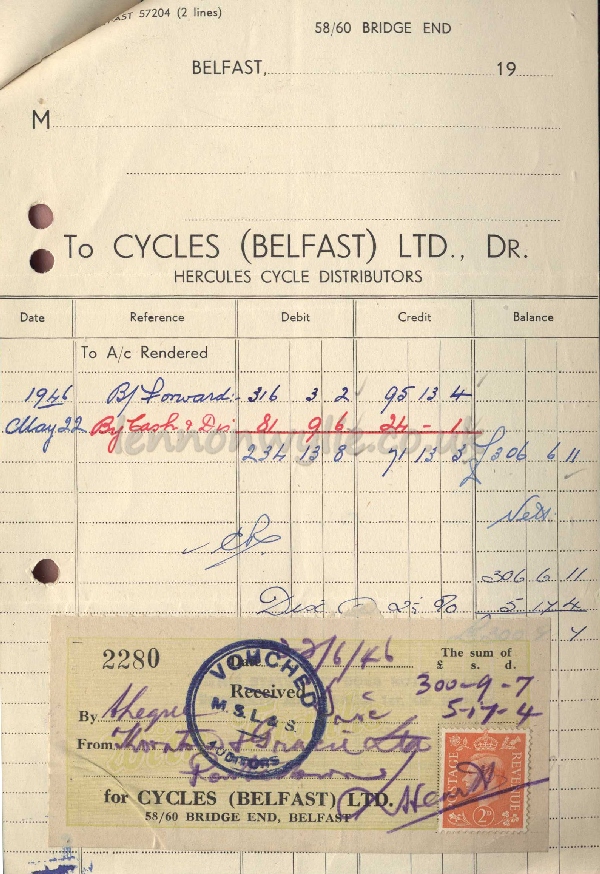 57204 (2 lines)
58/60 BRIDGE END
BELFAST, 19
M
To CYCLES (BELFAST) LTD., DR.
HERCULES CYCLE DISTRIBUTORS
Date Reference Debit Credit Balance
To A/c Rendered
1946 B/ Forward:- 316 3 2 95 13 4
May 22 By Cash & Dis 81 9 6 24 - 1
234 13 8 71 13 3 306 6 11
Nett
306 6 11
Dis @ 2½ % 5 17 4
2280 22/6/46 The sum of
£ s. d.
Received 300-9-7
By Cheque 5-17-4
From
for CYCLES (BELFAST) LTD.
58/60 BRIDGE END, BELFAST
VOUCHED
M. S. L. & S.
AUDITORS
POSTAGE REVENUE
2D